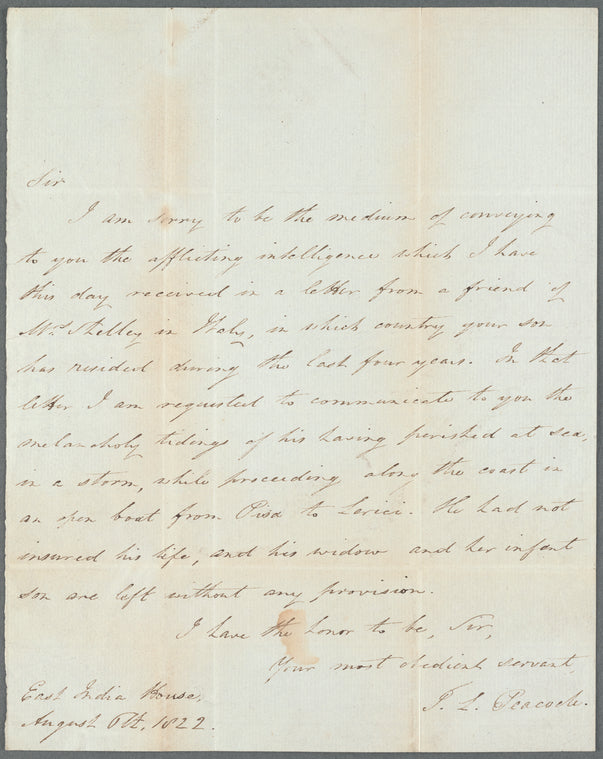 Sir
I am sorry to be the medium of conveying
to you the afflicting intelligence which I have
this day received in a letter from a friend of
Mrs Shelley in Italy, in which country your son
has resided during the last four years. In that
letter I am requested to communicate to you the
melancholy tidings of his having perished at sea,
in a storm, while proceeding along the coast in
an open boat from Pisa to Lerici. He had not
insured his life, and his widow and her infant
son are left without any provision.
I have the honor to be, Sir,
Your most obedient servant,
T. L. Peacock.
East India House,
August 6th, 1822.